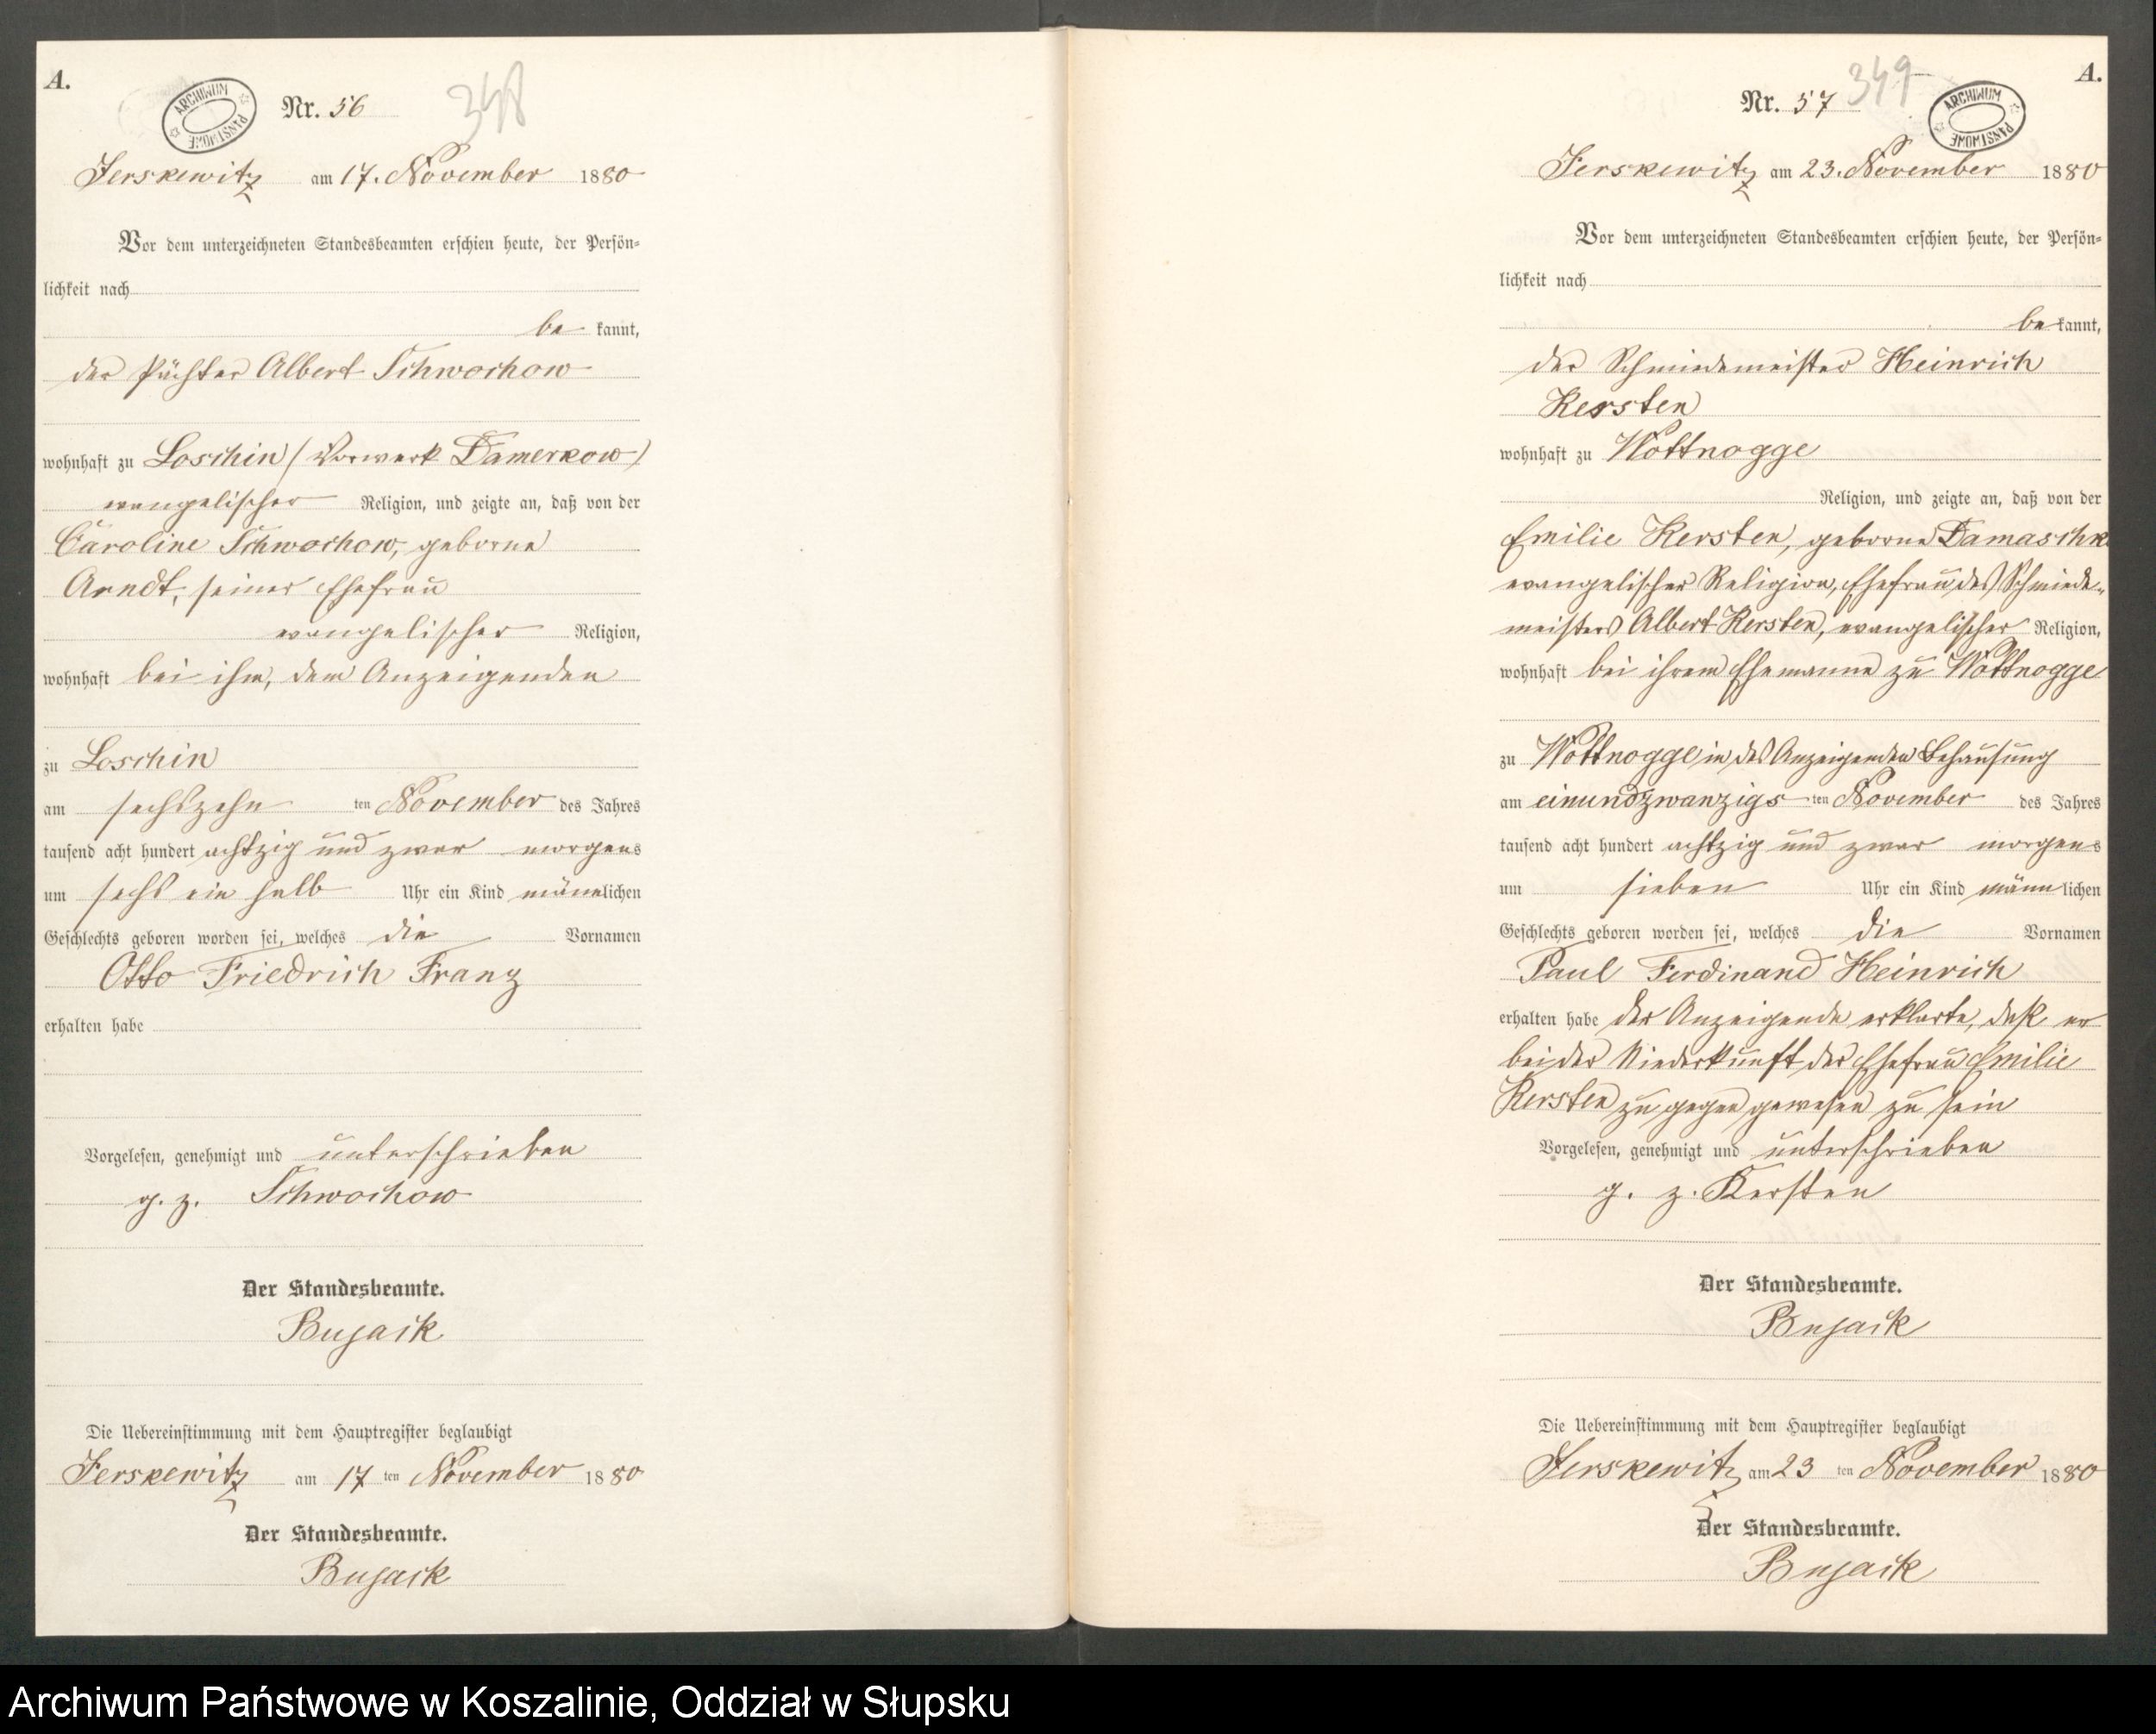 A.
ARCHIWUM PAŃSTWOWE
Nr. 56
348
Jerskewitz am 17. November 1880
Vor dem unterzeichneten Standesbeamten erschien heute, der Persön-
lichkeit nach
be kannt,
der Pächter Albert Schwochow
wohnhaft zu Loschin (Vorwerk Damerkow)
evangelischer Religion, und zeigte an, daß von der
Caroline Schwochow, geborne
Arndt, seiner Ehefrau
evangelischer Religion,
wohnhaft bei ihm, dem Anzeigenden
zu Loschin
am sechszehn ten November des Jahres
tausend acht hundert achtzig und zwar morgens
um sechs ein halb Uhr ein Kind männlichen
Geschlechts geboren worden sei, welches die Vornamen
Otto Friedrich Franz
erhalten habe
Vorgelesen, genehmigt und unterschrieben
g. z. Schwochow
Der Standesbeamte.
Bujack
Die Uebereinstimmung mit dem Hauptregister beglaubigt
Jerskewitz am 17 ten November 1880
Der Standesbeamte.
Bujack
A.
Nr. 57
349
ARCHIWUM PAŃSTWOWE
Jerskewitz am 23. November 1880
Vor dem unterzeichneten Standesbeamten erschien heute, der Persön-
lichkeit nach
be kannt,
der Schmiedemeister Heinrich
Kersten
wohnhaft zu Wottnogge
Religion, und zeigte an, daß von der
Emilie Kersten, geborne Damaschk
evangelischer Religion, Ehefrau des Schmiede-
meisters Albert Kersten, evangelischer Religion,
wohnhaft bei ihrem Ehemanne zu Wottnogge
zu Wottnogge in des Anzeigenden Behausung
am einundzwanzigs ten November des Jahres
tausend acht hundert achtzig und zwar morgens
um sieben Uhr ein Kind männlichen
Geschlechts geboren worden sei, welches die Vornamen
Paul Ferdinand Heinrich
erhalten habe der Anzeigende erklarte, daß er
bei der Niederkunft der Ehefrau Emilie
Kersten zu gegen gewesen zu sein
Vorgelesen, genehmigt und unterschrieben
g. z. Kersten
Der Standesbeamte.
Bujack
Die Uebereinstimmung mit dem Hauptregister beglaubigt
Jerskewitz am 23 ten November 1880
Der Standesbeamte.
Bujack
Archiwum Państwowe w Koszalinie, Oddział w Słupsku